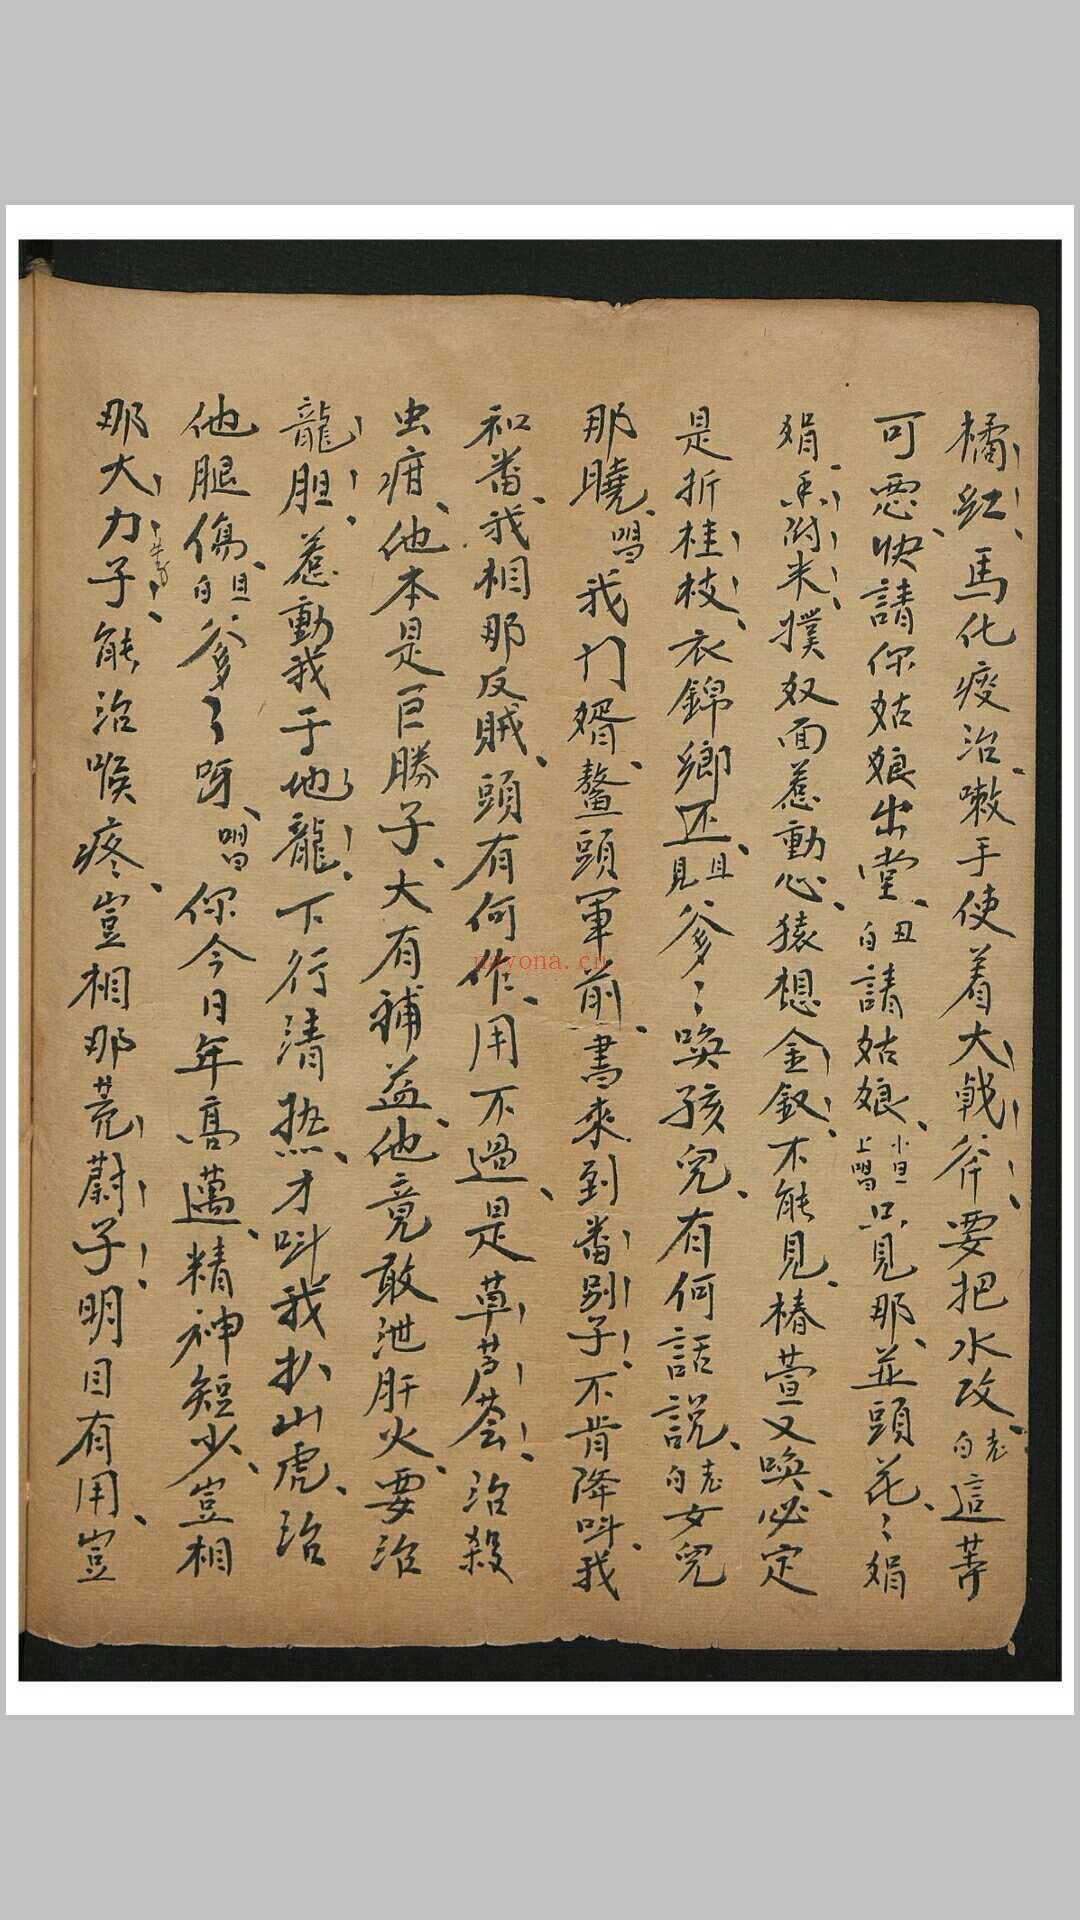 橘紅、馬化痰治、嗽手使着大戟斧、要把水攻、老白這等
可惡、快請你姑娘出堂、丑白請姑娘、小旦上唱只見那、並頭花、〻娟
娟、香附米、撲奴面惹動心、猿想金釵、不能見、椿萱又喚、必定
是折桂枝、衣錦鄉还、旦見爹〻喚孩兒、有何話說、老白女兒
那曉、唱我门婿、鰲頭軍前、書來到番别子、不肯降呌、我
和番、我相那反賊、頭有何作、用不過、是草芦荟、治殺
虫疳、他本是巨勝子、大有補益、他竟敢泄肝火、要治
龍胆、惹動我于他龍、下行清热、才呌我扒山虎、治
他腿傷、旦白爹〻呀、唱你今日年高邁、精神短少、豈相
那大力子、能治喉疼、豈相那茺蔚子、明目有用、豈
nayona.cn